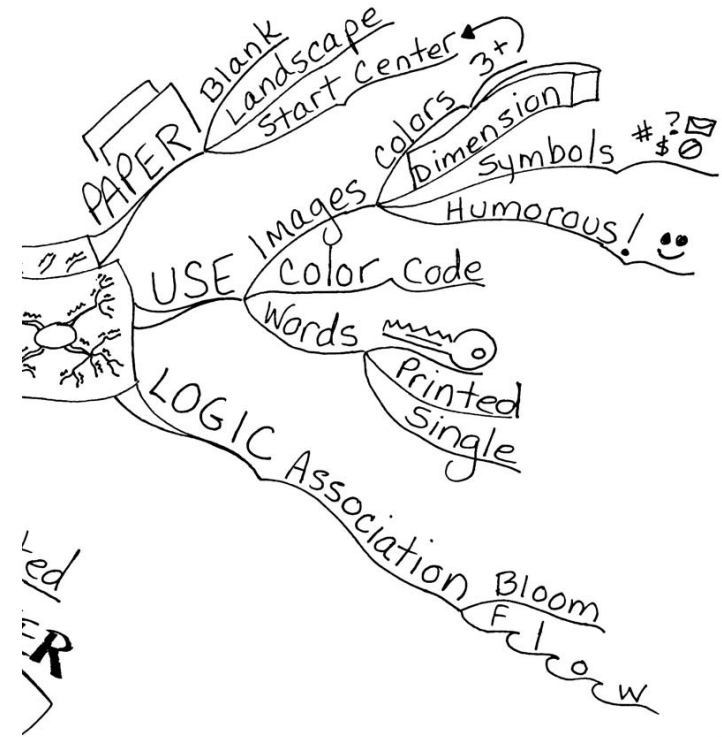 PAPER
Blank
Landscape
Start Center
USE
Images
Colors 3+
Dimension
Symbols
# ? $
Humorous!
Color Code
Words
Printed
Single
LOGIC
Association
Bloom
Flow
ted
ER